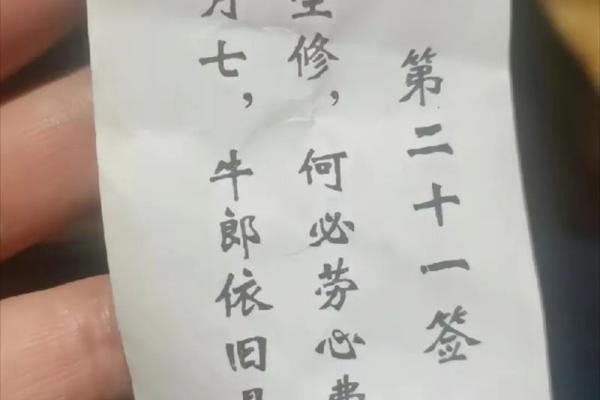 第二十一签
修，何必劳心费
月七，牛郎依旧